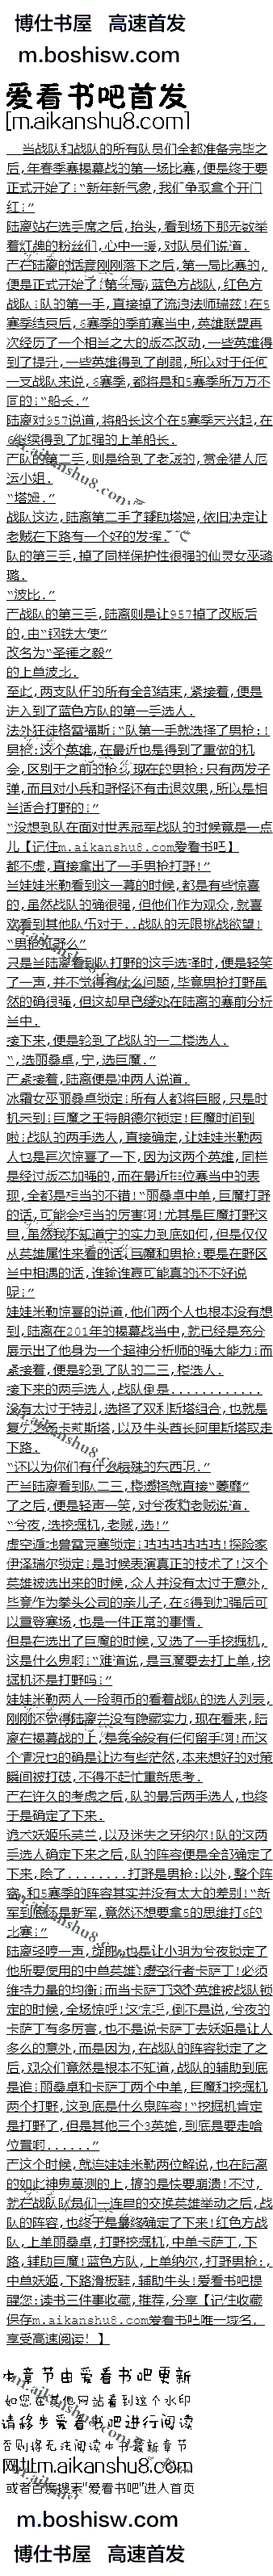 博仕书屋 高速首发
m.boshisw.com
爱看书吧首发
[m.aikanshu8.com]
当战队和战队的所有队员们全都准备完毕之
后,年春季赛揭幕战的第一场比赛,便是终于要
正式开始了!“新年新气象,我们争取拿个开门
红!”
陆离站在选手席之后,抬头,看到场下那无数举
着灯牌的粉丝们,心中一暖,对队员们说道.
产在陆离的话音刚刚落下之后,第一局比赛的,
便是正式开始了!第一局,蓝色方战队,红色方
战队!队的第一手,直接掉了流浪法师瑞兹!在5
赛季结束后,6赛季的季前赛当中,英雄联盟再
次经历了一个相当之大的版本改动,一些英雄得
到了提升,一些英雄得到了削弱,所以对于任何
一支战队来说,6赛季,都将是和5赛季所万万不
同的!“船长.”
陆离对957说道,将船长这个在5赛季大兴起,在
6继续得到了加强的上单船长.
产队的第二手,则是给到了老贼的,赏金猎人厄
运小姐.
“塔姆.”
战队这边,陆离第二手了辅助塔姆,依旧决定让
老贼在下路有一个好的发挥.
队的第三手,掉了同样保护性很强的仙灵女巫璐
璐.
“波比.”
产战队的第三手,陆离则是让957掉了改版后
的,由“钢铁大使”
改名为“圣锤之毅”
的上单波比.
至此,两支队伍的所有全部结束,紧接着,便是
进入到了蓝色方队的第一手选人.
法外狂徒格雷福斯!“队第一手就选择了男枪!!
男枪!这个英雄,在最近也是得到了重做的机
会,区别于之前的枪!,现在的男枪!只有两发子
弹,而且对小兵和野怪还有击退效果,所以是相
当适合打野的!”
“没想到队在面对世界冠军战队的时候竟是一点
儿【记住m.aikanshu8.com爱看书吧】
都不虚,直接拿出了一手男枪打野!”
当娃娃米勒看到这一幕的时候,都是有些惊喜
的,虽然战队的确很强,但他们作为观众,就喜
欢看到其他队伍对于..战队的无限挑战欲望!
“男枪打野么”
只是当陆离看到队打野的这手选择时,便是轻笑
了一声,并不觉得有什么问题,毕竟男枪打野虽
然的确很强,但这却早已经处在陆离的赛前分析
当中.
接下来,便是轮到了战队的一二楼选人.
“,选丽桑卓,宁,选巨魔.”
产紧接着,陆离便是冲两人说道.
冰霜女巫丽桑卓锁定!所有人都将臣服,只是时
机未到!巨魔之王特朗德尔锁定!巨魔时间到
啦!战队的两手选人,直接确定,让娃娃米勒两
人也是再次惊喜了一下,因为这两个英雄,同样
是经过版本加强的,而在最近排位赛当中的表
现,全都是相当的不错!“丽桑卓中单,巨魔打野
的话,可能会相当的厉害啊!尤其是巨魔打野这
里,虽然我不知道宁的实力到底如何,但是仅仅
从英雄属性来看的话!巨魔和男枪!要是在野区
当中相遇的话,谁输谁赢可能真的还不好说
呢!”
娃娃米勒惊喜的说道,他们两个人也根本没有想
到,陆离在201年的揭幕战当中,就已经是充分
展示出了他身为一个超神分析师的强大能力!而
紧接着,便是轮到了队的二三,楼选人.
接下来的两手选人,战队倒是............
没有太过于特别,选择了双利斯塔组合,也就是
复仇之矛卡莉斯塔,以及牛头酋长阿里斯塔取走
下路.
“还以为你们有什么特殊的东西呢.”
产当陆离看到队二三,楼选择就直接“萎靡”
了之后,便是轻声一笑,对兮夜和老贼说道.
“兮夜,选挖掘机,老贼,选!”
虚空遁地兽雷克塞锁定!咕咕咕咕咕咕!探险家
伊泽瑞尔锁定!是时候表演真正的技术了!这个
英雄被选出来的时候,众人并没有太过于意外,
毕竟作为拳头公司的亲儿子,在6得到加强后可
以重登赛场,也是一件正常的事情.
但是在选出了巨魔的时候,又选了一手挖掘机,
这是什么鬼啊!“难道说,是巨魔要去打上单,挖
掘机还是打野吗!”
娃娃米勒两人一脸萌币的看着战队的选人列表,
刚刚还觉得陆离并没有隐藏实力,现在看来,陆
离在揭幕战的上,是完全没有任何留手啊!而这
个情况也的确是让边有些茫然,本来想好的对策
瞬间被打破,不得不赶忙重新思考.
产在许久的考虑之后,队的最后两手选人,也终
于是确定了下来.
诡术妖姬乐芙兰,以及迷失之牙纳尔!队的这两
手选人确定下来之后,队的阵容便是全部确定了
下来,除了........打野是男枪!以外,整个阵
容,和5赛季的阵容其实并没有太大的差别!“新
军到底还是新军,竟然还想要拿5的思维打6的
比赛!”
陆离轻哼一声,旋即,也是让小明为兮夜锁定了
他所要使用的中单英雄!虚空行者卡萨丁!必须
维持力量的均衡!而当卡萨丁这个英雄被战队锁
定的时候,全场惊呼!这惊呼,倒不是说,兮夜的
卡萨丁有多厉害,也不是说卡萨丁去妖姬是让人
多么的意外,而是因为,在战队的阵容锁定了之
后,观众们竟然是根本不知道,战队的辅助到底
是谁!丽桑卓和卡萨丁两个中单,巨魔和挖掘机
两个打野,这到底是什么鬼阵容!“挖掘机肯定
是打野了,但是其他三个3英雄,到底是要走啥
位置啊......”
产这个时候,就连娃娃米勒两位解说,也在陆离
的如此神鬼莫测的上,搞的是快要崩溃!不过,
就在战队队员们一连串的交换英雄举动之后,战
队的阵容,也终于是最终确定了下来!红色方战
队,上单丽桑卓,打野挖掘机,中单卡萨丁,下
路,辅助巨魔!蓝色方队,上单纳尔,打野男枪!,
中单妖姬,下路滑板鞋,辅助牛头!爱看书吧提
醒您:读书三件事收藏,推荐,分享【记住收藏
保存m.aikanshu8.com爱看书吧唯一域名,
享受高速阅读!】
本章节由爱看书吧更新
如您在其他网站看到这个水印
请移步爱看书吧进行阅读
否则将无法阅读本书最新章节
网址m.aikanshu8.com
或者百度搜索“爱看书吧”进入首页
m.boshisw.com
博仕书屋 高速首发